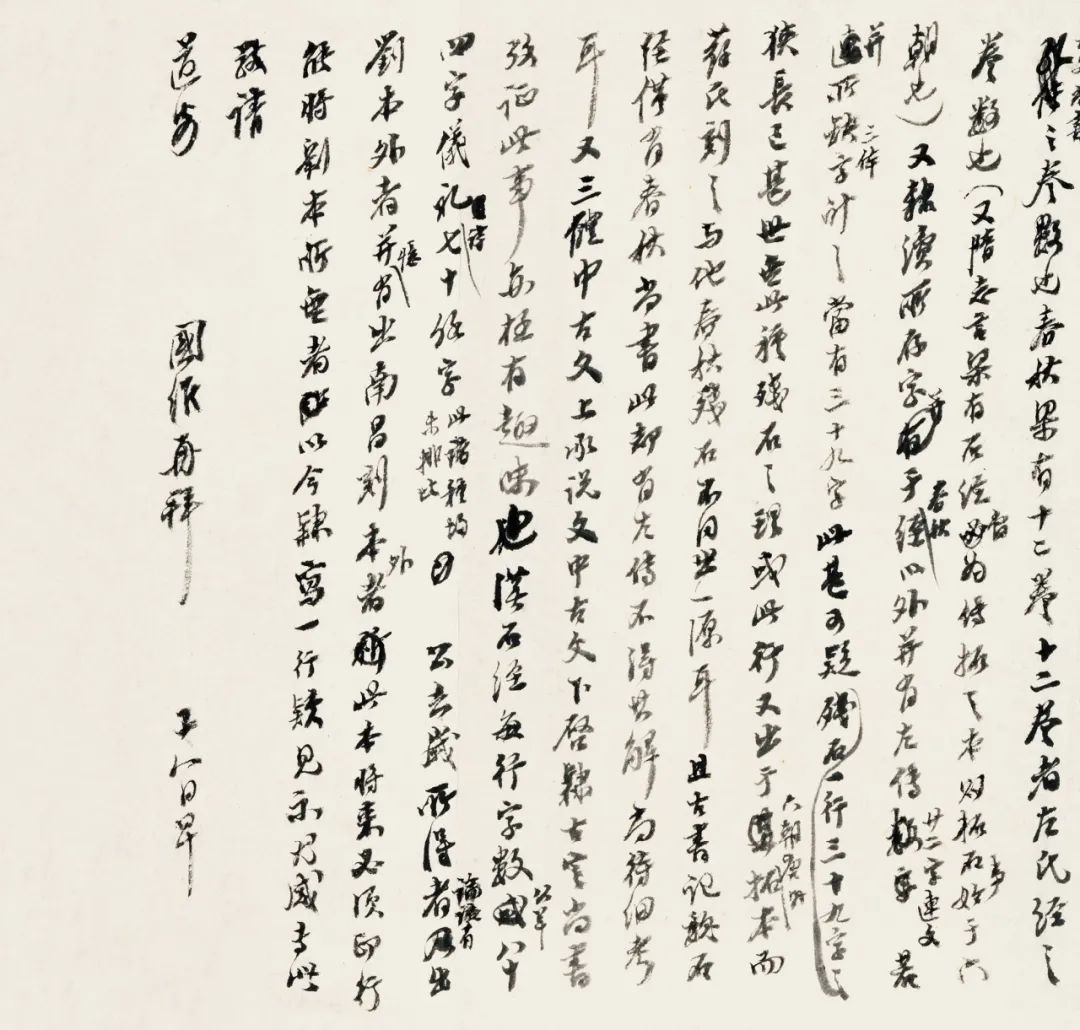 之卷數也春秋梁有十二卷十二卷者左氏經之
卷數也（又隋志言梁有石經當為傳拓之本則拓石始于六
朝也）又隸續所存字并于春秋以外并有左傳廿二字連文若
并所缺字計之當有三十九字此甚可疑殘石一行三十九字之
狹長已甚世無此種殘石之理或此行又出于六朝唐時拓本而
蘇氏刻之与他春秋殘石不同出一源耳且古書記魏石
經僅有春秋尚書此却有左傳不得其解尚待細考
耳又三體中古文上承說文中古文下啓隸古定尚書
弦證此事亦極有趣味也漢石經每行字數公羊
四字儀礼七十餘字此諸種均未排比 公去歲所得者論語有出
劉本外者并有出南昌刻本外者此本將來必須印行
能將劉本所無者以今隸寫一行款見示尤感專此
敬請
道安 國維再拜 八日早